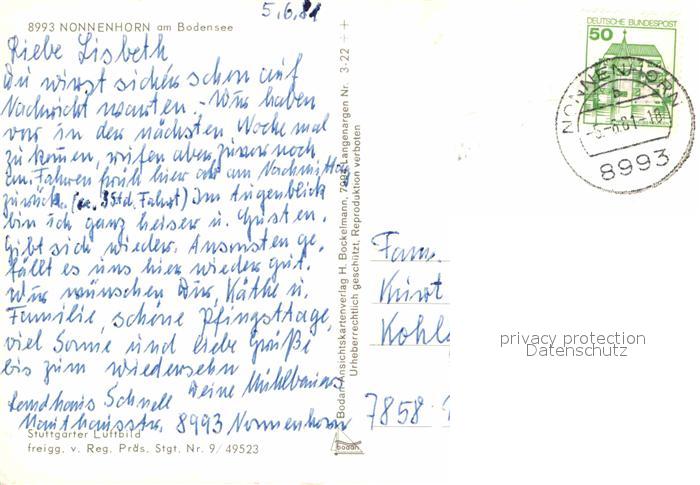 5.6.81
8993 NONNENHORN am Bodensee
Liebe Lisbeth
Du wirst sicher schon auf
Nachricht warten. - Wir haben
vor in der nächsten Woche mal
zu kommen, rufen aber zuvor noch
an. Fahren früh hier ab am Nachmittag
zurück. (ca. 3 Std. Fahrt) Im Augenblick
bin ich ganz heiser u. Husten.
Gibt sich wieder. Ansonsten ge-
fällt es uns hier wieder gut.
Wir wünschen Dir, Käthe u.
Familie, schöne Pfingsttage,
viel Sonne und liebe Grüße
bis zum wiedersehn
Deine Mühlbauers
Landhaus Schnell
Mauthausstr. 8993 Nonnenhorn
Stuttgarter Luftbild
freigg. v. Reg. Präs. Stgt. Nr. 9/49523
Bodan-Ansichtskartenverlag H. Bockelmann, 7994 Langenargen Nr. 3-22
Urheberrechtlich geschützt, Reproduktion verboten
bodan
DEUTSCHE BUNDESPOST
50
NONNENHORN
b
-5.-6.81-18
8993
Fam.
Kurt
7858
privacy protection
Datenschutz